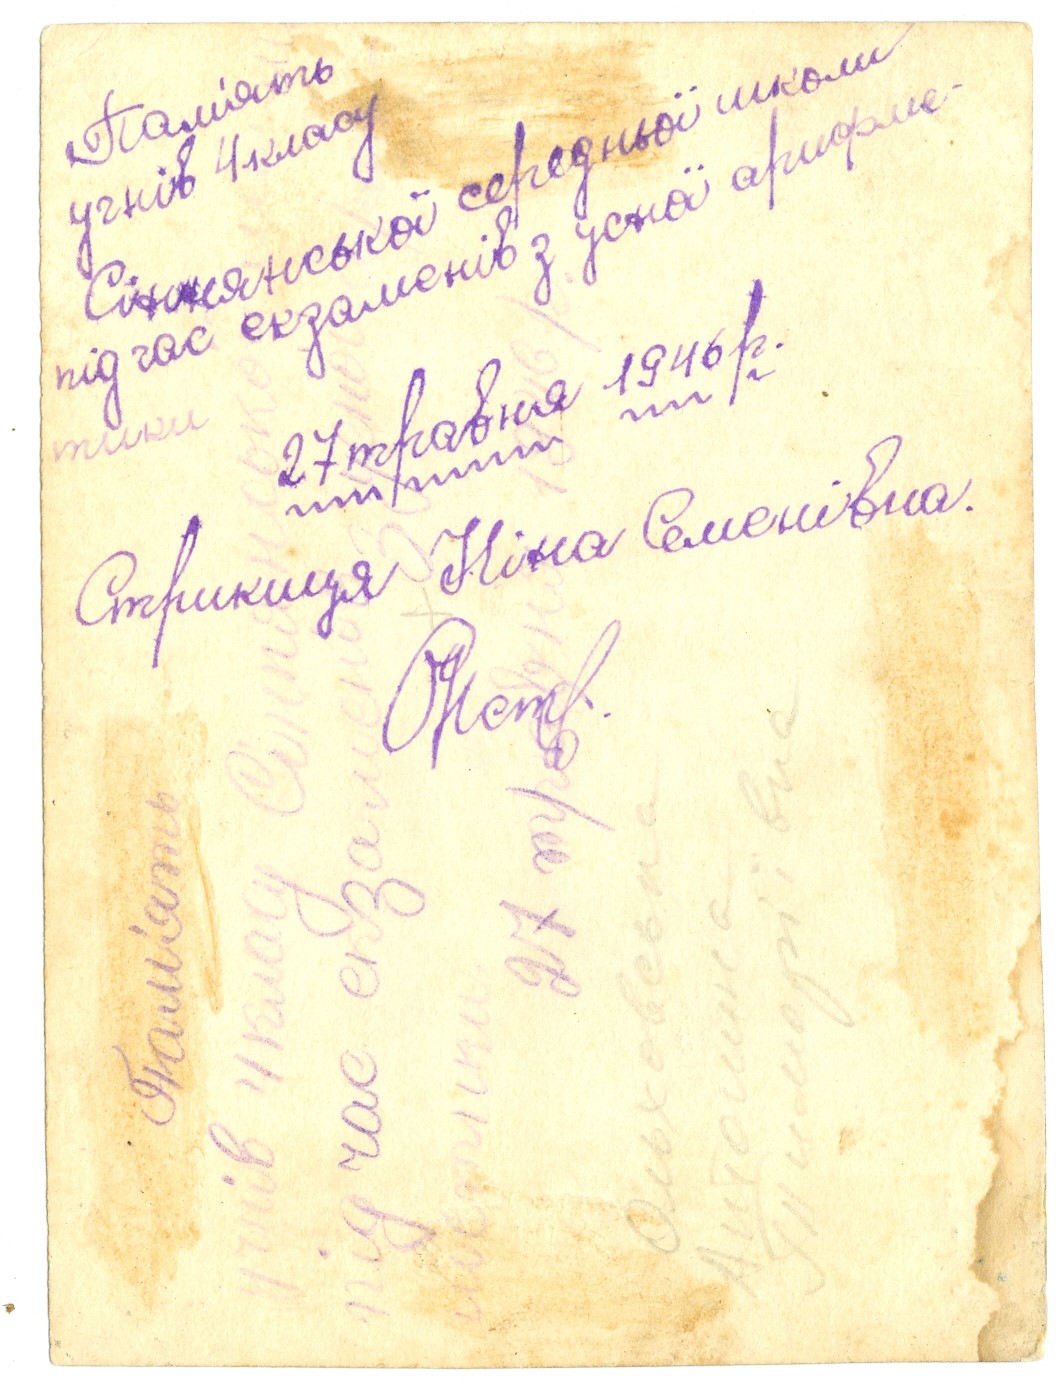 Пам'ять
учнів 4 класу
Сіннянської середньої школи
під час екзаменів з усної арифме-
тики
27 травня 1946 р.
Стрикиця Ніна Семенівна.
Пам'ять
учнів 4 класу
під час екзаменів
метики
27 травня 1946 р.
Ольховська
Антоніна